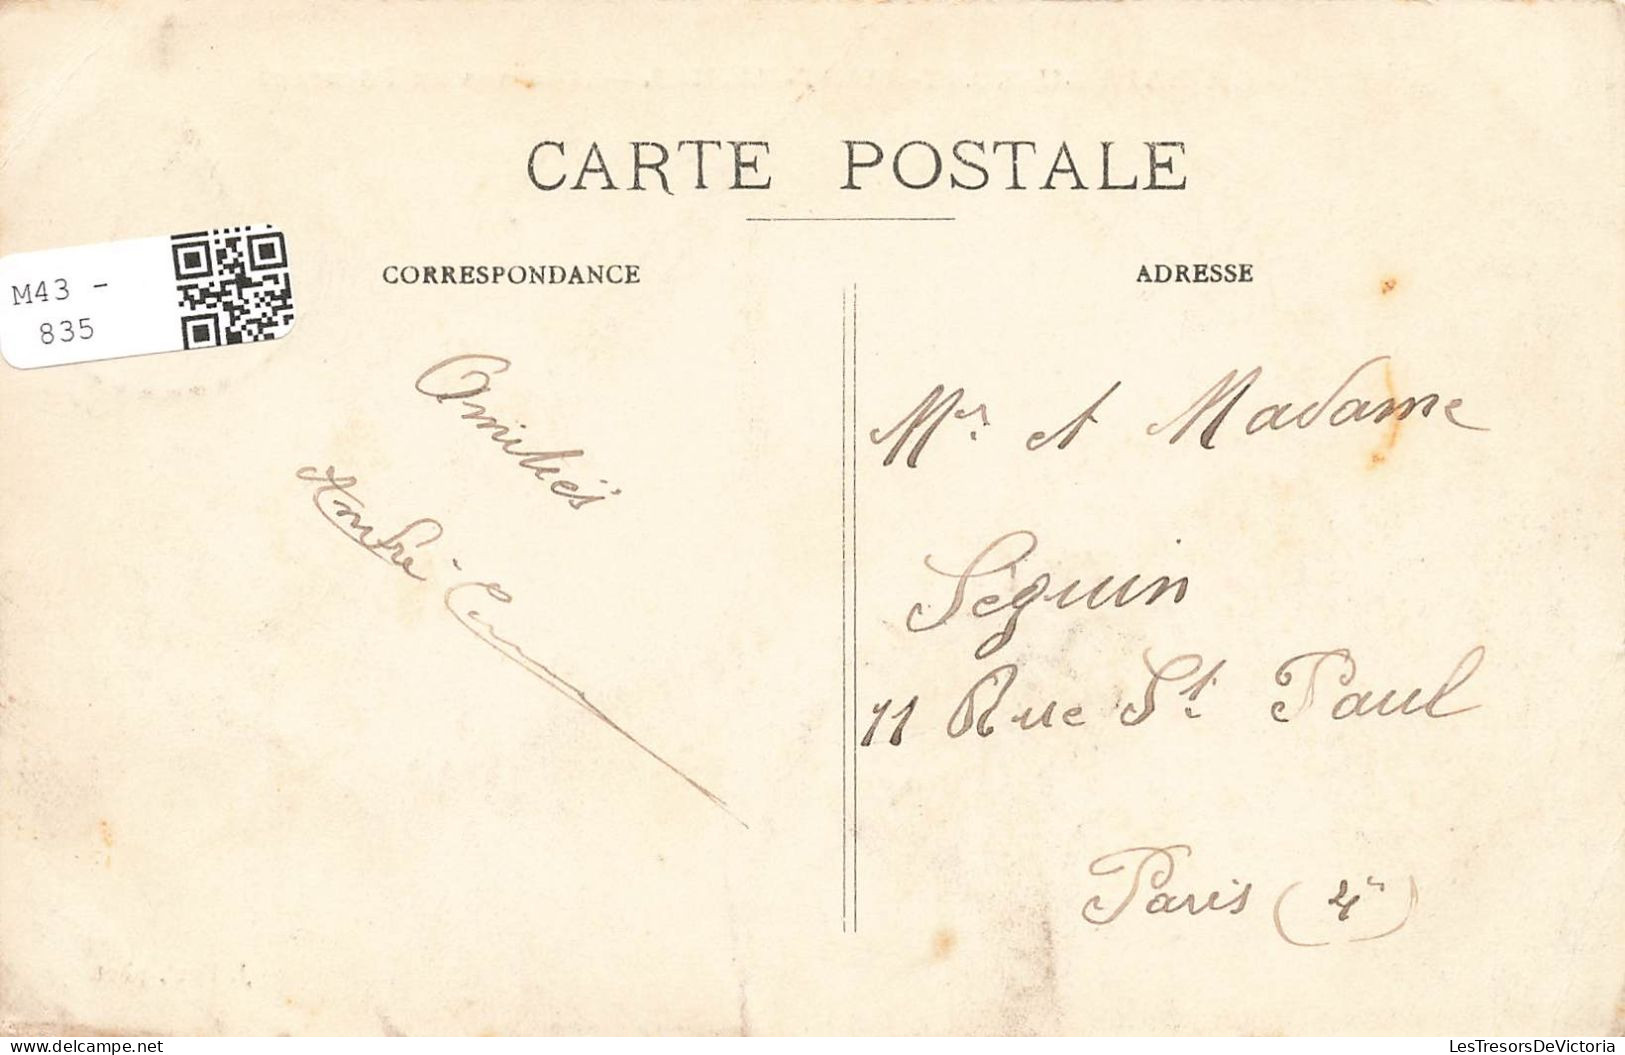 CARTE POSTALE
CORRESPONDANCE
ADRESSE
M43 -
835
Amitiés
André
Mr et Madame
Séguin
11 Rue St Paul
Paris (4e)
LesTresorsDeVictoria
delcampe.net